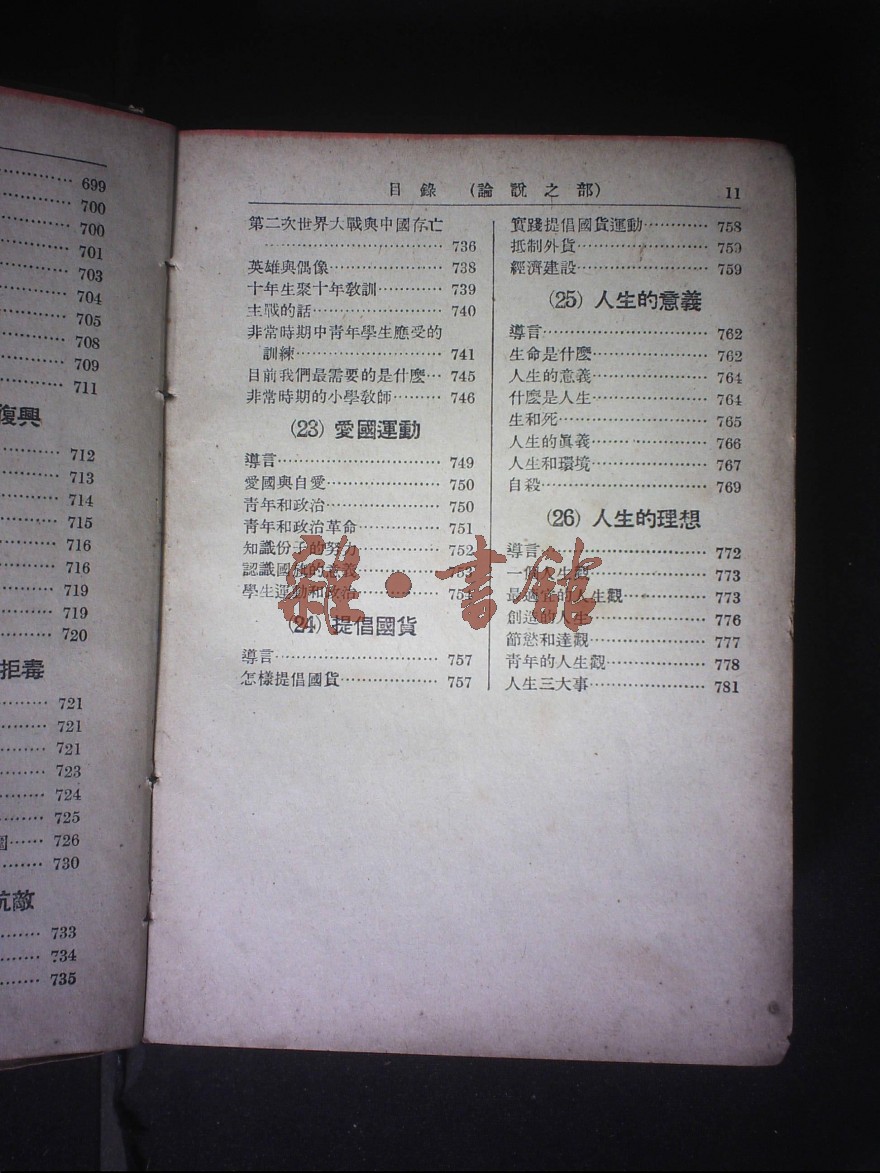 699
700
700
701
703
704
705
708
709
711
復興
712
713
714
715
716
716
719
719
720
拒毒
721
721
721
723
724
725
726
730
抗敵
733
734
735
目錄 (論說之部) 11
第二次世界大戰與中國存亡
………………………… 736
英雄與偶像……………… 738
十年生聚十年教訓………… 739
主戰的話………………… 740
非常時期中青年學生應受的
訓練……………………… 741
目前我們最需要的是什麼… 745
非常時期的小學教師……… 746
(23) 愛國運動
導言……………………… 749
愛國與自愛……………… 750
青年和政治……………… 750
青年和政治革命………… 751
知識份子的努力………… 752
認識國旗的意義………… 753
學生運動和政治………… 754
(24) 提倡國貨
導言……………………… 757
怎樣提倡國貨…………… 757
實踐提倡國貨運動……… 758
抵制外貨………………… 759
經濟建設………………… 759
(25) 人生的意義
導言……………………… 762
生命是什麼……………… 762
人生的意義……………… 764
什麼是人生……………… 764
生和死…………………… 765
人生的眞義……………… 766
人生和環境……………… 767
自殺……………………… 769
(26) 人生的理想
導言……………………… 772
一個人生觀……………… 773
最適宜的人生觀………… 773
創造的人生……………… 776
節慾和達觀……………… 777
青年的人生觀…………… 778
人生三大事……………… 781
雜·書館